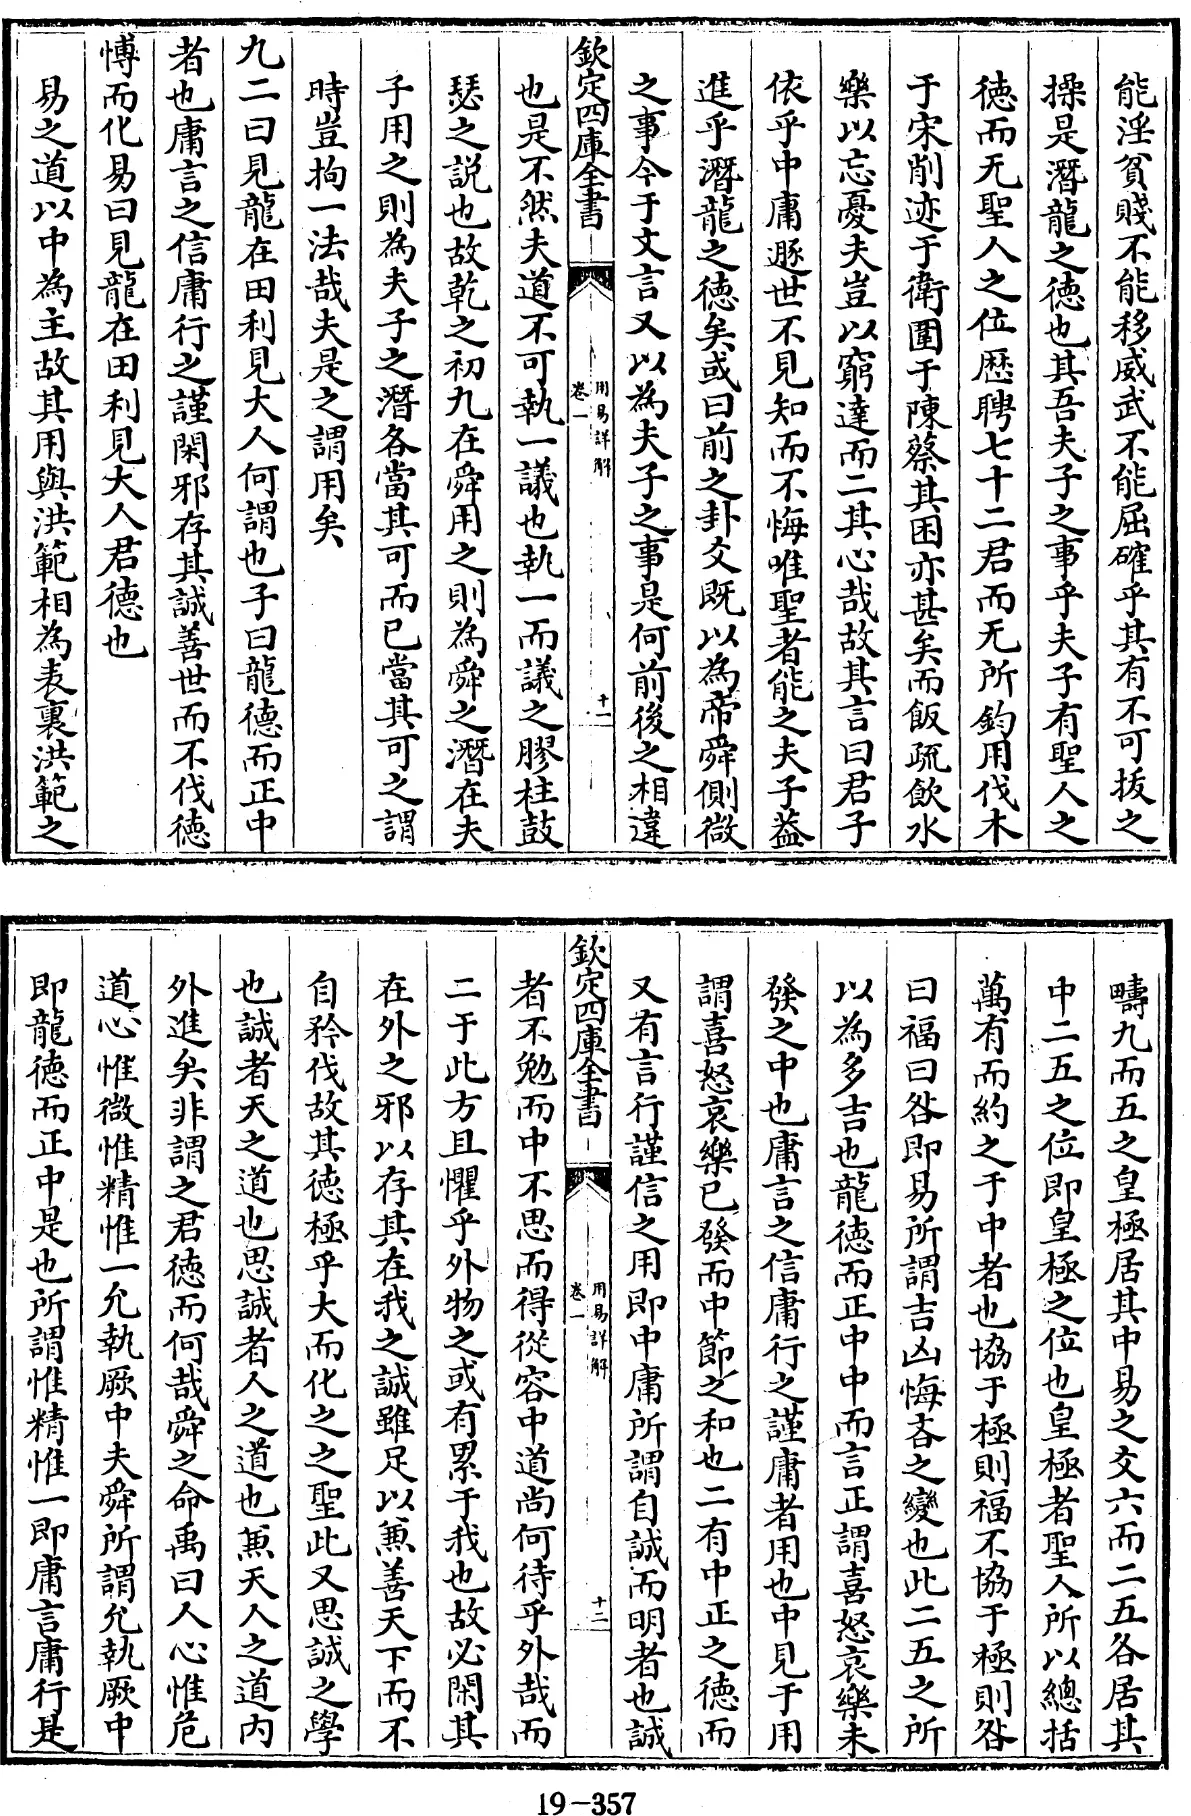 能淫貧賤不能移威武不能屈確乎其有不可拔之
操是潛龍之德也其吾夫子之事乎夫子有聖人之
德而无聖人之位歷聘七十二君而无所鈎用伐木
于宋削迹于衛圍于陳蔡其困亦甚矣而飯疏飲水
樂以忘憂夫豈以窮達而二其心哉故其言曰君子
依乎中庸遯世不見知而不悔唯聖者能之夫子葢
進乎潛龍之德矣或曰前之卦爻既以為帝舜側微
之事今于文言又以為夫子之事是何前後之相違
欽定四庫全書
用易詳解
卷一
十一
也是不然夫道不可執一議也執一而議之膠柱鼓
瑟之説也故乾之初九在舜用之則為舜之潛在夫
子用之則為夫子之潛各當其可而已當其可之謂
時豈拘一法哉夫是之謂用矣
九二曰見龍在田利見大人何謂也子曰龍德而正中
者也庸言之信庸行之謹閑邪存其誠善世而不伐德
博而化易曰見龍在田利見大人君德也
易之道以中為主故其用與洪範相為表裏洪範之
疇九而五之皇極居其中易之爻六而二五各居其
中二五之位即皇極之位也皇極者聖人所以總括
萬有而約之于中者也協于極則福不協于極則咎
曰福曰咎即易所謂吉凶悔吝之變也此二五之所
以為多吉也龍德而正中中而言正謂喜怒哀樂未
發之中也庸言之信庸行之謹庸者用也中見于用
謂喜怒哀樂已發而中節之和也二有中正之德而
又有言行謹信之用即中庸所謂自誠而明者也誠
欽定四庫全書
用易詳解
卷一
十二
者不勉而中不思而得從容中道尚何待乎外哉而
二于此方且懼乎外物之或有累于我也故必閑其
在外之邪以存其在我之誠雖足以兼善天下而不
自矜伐故其德極乎大而化之之聖此又思誠之學
也誠者天之道也思誠者人之道也兼天人之道内
外進矣非謂之君德而何哉舜之命禹曰人心惟危
道心惟微惟精惟一允執厥中夫舜所謂允執厥中
即龍德而正中是也所謂惟精惟一即庸言庸行是
19-357